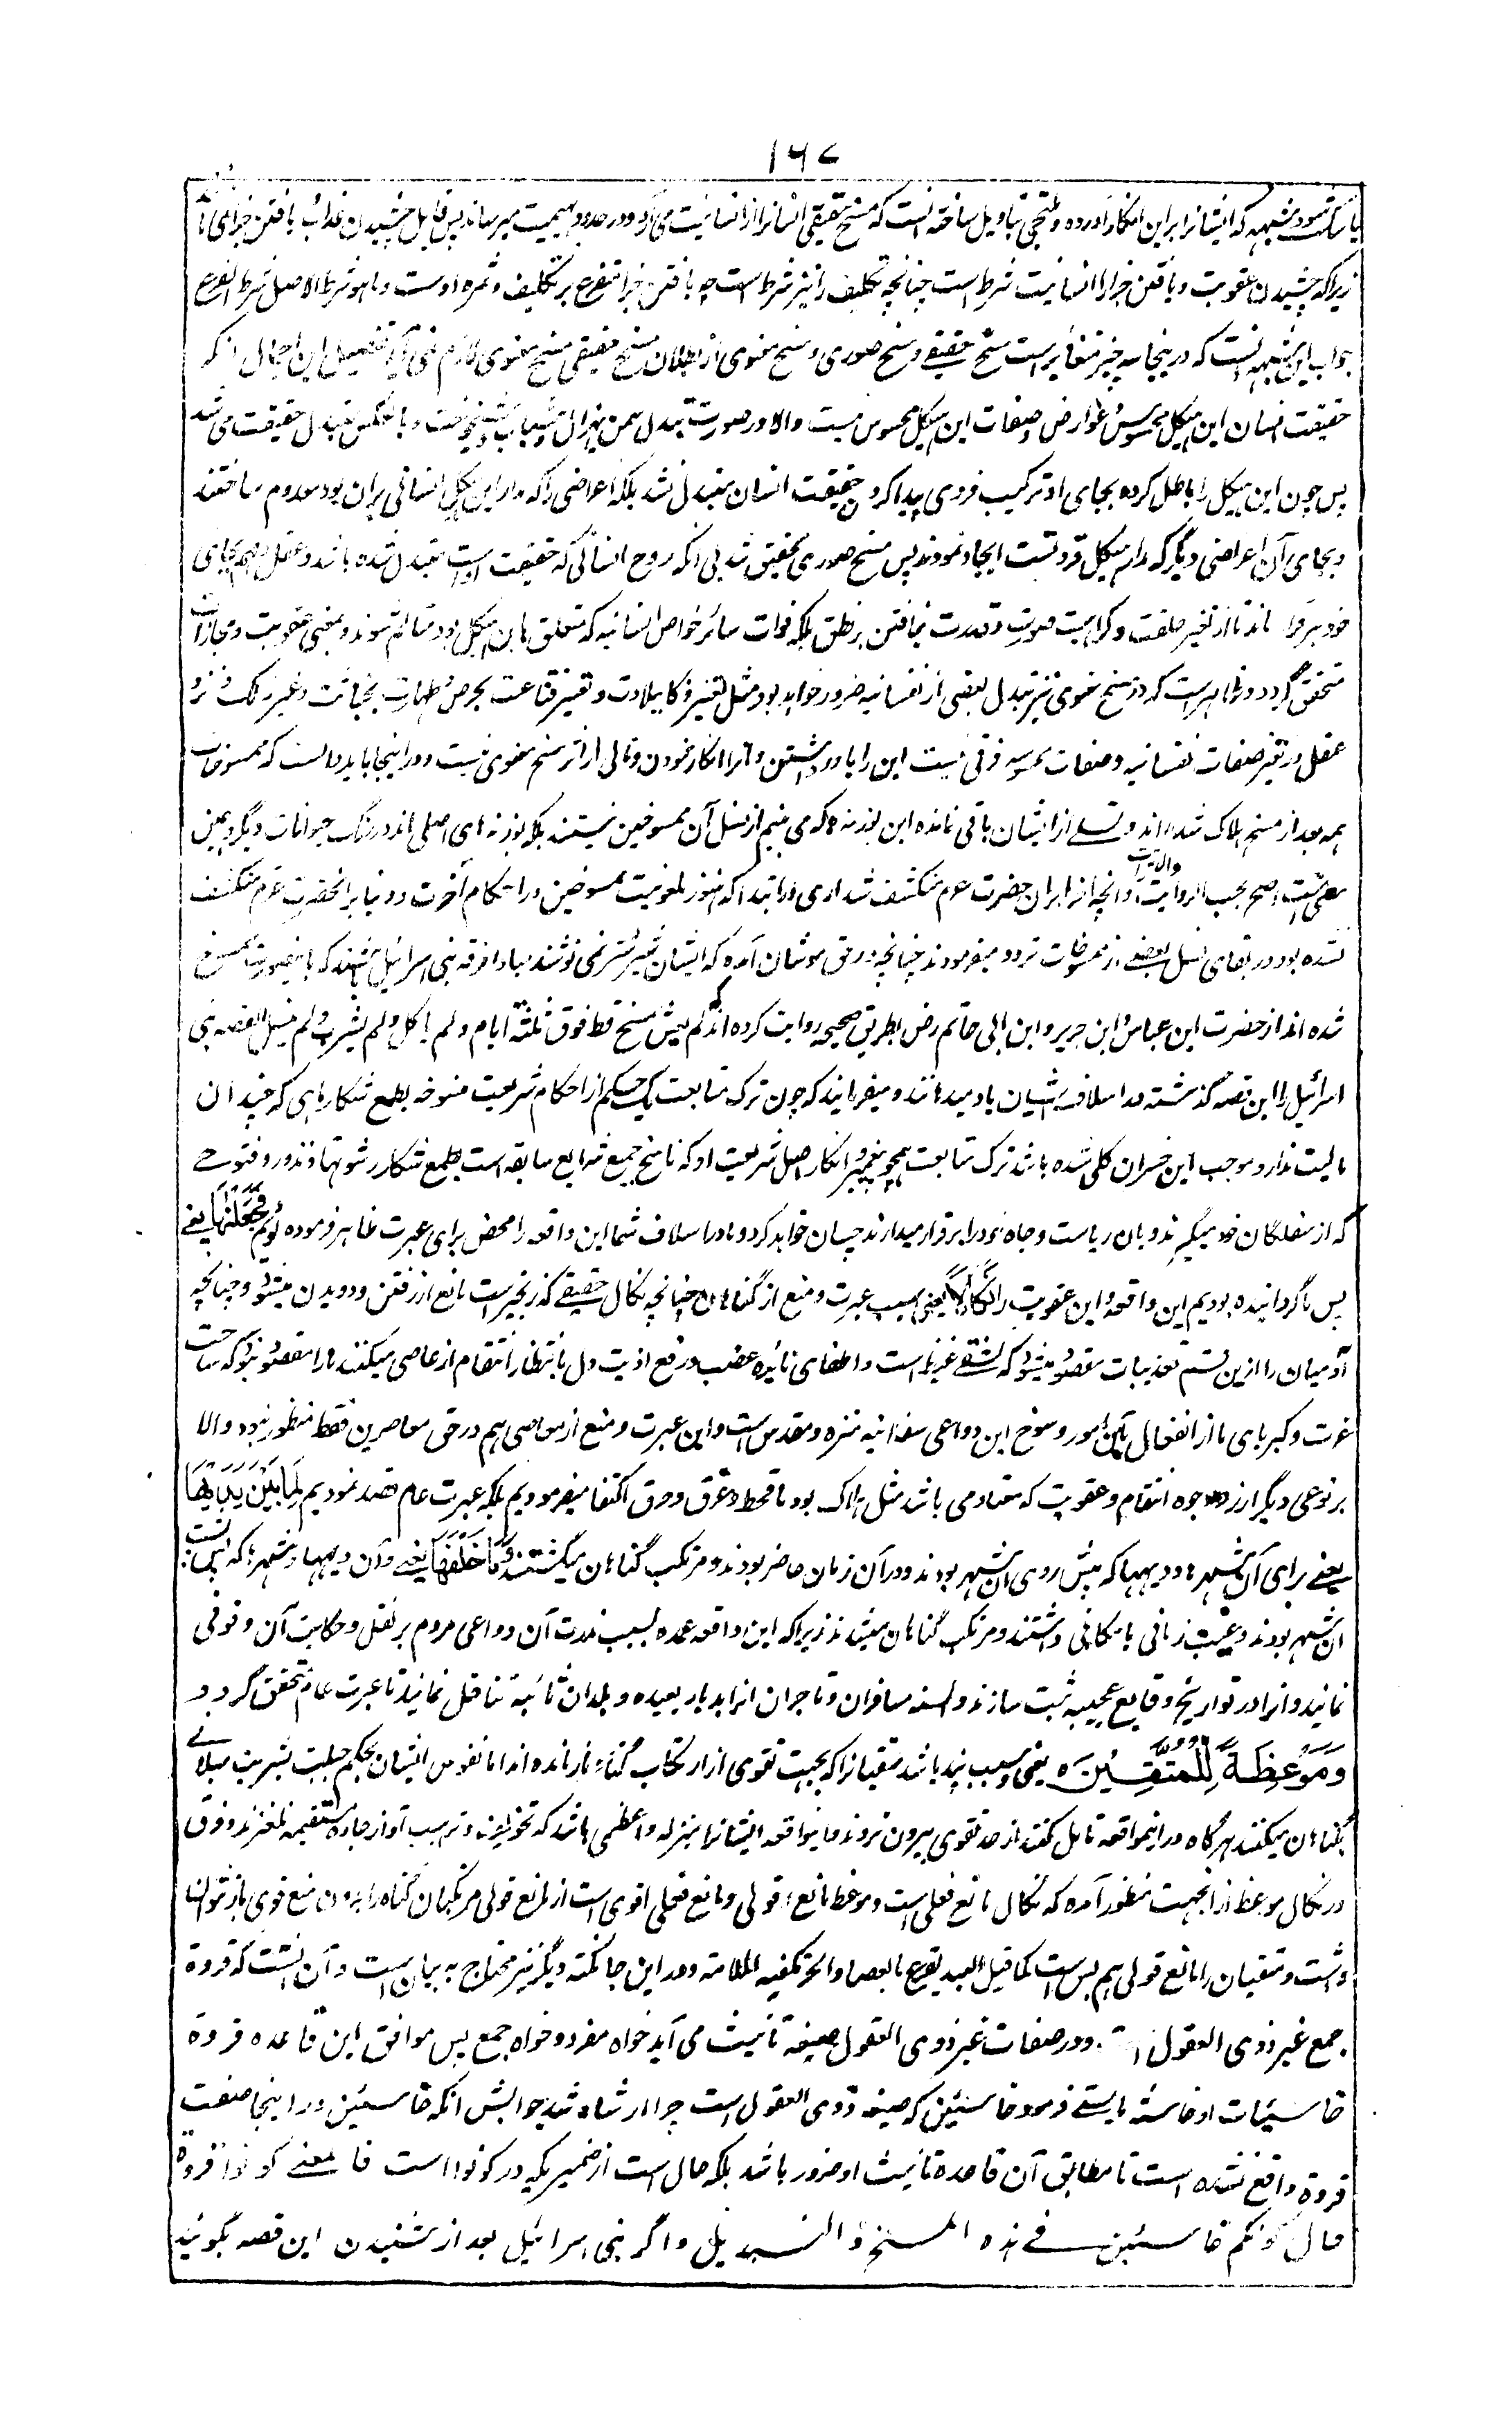 ۱۶۷
باید شمود شبهه که ایشانرا برین انکار آورده و ملتجی بتاویل ساخته است که مسخ حقیقی انسانرا از انسانیت می برآرد و در حدود بهیمیت میرساند پس قابل چشیدن عذاب یا یافتن جزای
زیرا که چشیدن عقوبت و یافتن جزا را انسانیت شرط است چنانچه تکلیف را نیز شرط است چه یافتن جزا متفرع بر تکلیف و ثمره اوست و ما هو شرط الاصل شرط الفرع
جواب این شبهه آنست که درینجا سه چیز متغائر است مسخ حقیقے و مسخ صوری و مسخ معنوی از بطلان مسخ حقیقی مسخ معنوی لازم نمی آید تفصیل این اجمال آنکه
حقیقت انسان این هیکل محسوس و عوارض و صفات این هیکل محسوس نیست والا در صورت تبدل سمن بهزال و شباب بشیخوخت و بالعکس تبدل حقیقت می شد
پس چون این هیکل را باطل کرده بجای او ترکیب قردی پیدا کرد حقیقت انسان متبدل نشد بلکه اعراضی را که مدار این هیکل انسانی بران بود معدوم ساختند
و بجای آن اعراضی دیگر که مدار هیکل قردیست ایجاد نمودند پس مسخ صوری متحقق شد بی آنکه روح انسانی که حقیقت اوست متبدل شده باشد و عقل و فهم بجای
خود برقرار ماند تا از تغیر خلقت و کراهیت صورت و قدرت نیافتن بر نطق بلکه فوات سائر خواص انسانیه که متعلق بان هیکل بود متالم شوند و معنی عقوبت و مجازات
متحقق گردد و ظاهر است که در مسخ معنوی نیز تبدل بعضی از نفسانیه ضرور خواهد بود مثل تغیر ذکا ببلادت و تغیر قناعت بحرص و طهارت بخباثت و غیر ذلک و نزد
عقل در تغیر صفات نفسانیه و صفات محسوسه فرقی نیست این را باور داشتن و آنرا انکار نمودن خالی از اثر مسخ معنوی نیست و در اینجا باید دانست که ممسوخات
همه بعد از مسخ هلاک شده اند و نسلے از ایشان باقی نمانده این بوزنه ها که می بینیم از نسل آن ممسوخین نیستند بلکه بوزنه های اصلی اند در رنگ حیوانات دیگر و همین
معنی است اصح بحسب الروایت والدرایت و آنچه از ابران حضرت عوم منکشف شد اری در ابتدا که هنوز ملعونیت ممسوخین در احکام آخرت و دنیا بر آنحضرت عوم منکشف
نشده بود در بقای نسل بعضے از ممسوخات تردد میفرمودند چنانچه در حق موشان آمده که ایشان شیر شتر نمی نوشند مبادا فرقه بنی اسرائیل باشند که باینصورت ممسوخ
شده اند از حضرت ابن عباس ابن جریر و ابن ابی حاتم رض بطریق صحیحه روایت کرده اند که لم یعش مسخ قط فوق ثلثة ایام و لم یاکل و لم یشرب و لم ینسل القصه بنی
اسرائیل را این قصه گذشته در اسلاف ایشان یاد میدهانند و میفرمایند که چون ترک متابعت یک حکم از احکام شریعت منسوخه بطمع شکار ماهی که چندان
مالیت ندارد موجب این خسران کلی شده باشد ترک متابعت همچو پیغمبر و انکار اصل شریعت او که ناسخ جمیع شرایع سابقه است بطمع شکار رشوتها و نذور و فتوحے
که از سفلگان خود میگیرند و بان ریاست و جاه خود را برقرار میدارند چسان خواهد کرد و مادر اسلاف شما این واقعه را محض برای عبرت ظاهر فرموده بودیم فَجَعَلْنَاهَا یعنے
پس ما گردانیده بودیم این واقعه و این عقوبت را نَکَالًا یعنی سبب عبرت و منع از گناهان چنانچه نکال حقیقے که زنجیر است مانع از رفتن و دویدن میشود و چنانچه
آدمیان را ازین قسم تعذیبات مقصود میشود که تشفے غیظ است و اطفای نائره غضب و رفع اذیت دل بانتظار انتقام از عاصی میکنند ما را مقصود نبود که ساحت
عزت و کبریای ما از انفعال باین امور و سنوح این دواعی سفلانیه منزه و مقدس است و این عبرت و منع از معاصی هم در حق معاصرین فقط منظور نبود والا
بر نوعی دیگر از وجوه انتقام و عقوبت که معتاد می باشد مثل هلاک بود یا قحط و غرق و حرق اکتفا میفرمودیم بلکه عبرت عام قصد نمودیم لِمَا بَیْنَ یَدَیْهَا
یعنے برای آن شهرها و دیهها که پیش روی آن شهر بودند و در آن زمان حاضر بودند و مرتکب گناهان میگشتند وَمَا خَلْفَهَا یعنے و آن دیهها و شهرها که پس پشت
آن شهر بودند و غیبت زمانی یا مکانی داشتند و مرتکب گناهان میشوند زیرا که این واقعه عمده بسبب ندرت آن دواعی مردم بر نقل و حکایت آن و قوفی
نمایند و آنرا در تواریخ وقایع عجیبه ثبت سازند و السنه مسافران و تاجران آنرا بدیار بعیده و بلدان نائیه تناقل نمایند تا عبرت عام متحقق گردد و
وَمَوْعِظَةً لِلْمُتَّقِیْنَ ه یعنی و سبب پند باشد متقیانرا که بجهت تقوی از ارتکاب گناه باز مانده اند اما نفوس ایشان بحکم جبلت بشریت میلانے
بگناهان میکنند هرگاه در اینواقعه تامل کنند از حد تقوی بیرون نروند و اینواقعه ایشانرا بمنزله واعظی باشد که تخویف و ترهیب او از جاده مستقیمه نلغزند و فرق
در نکال موعظه ازینجهت منظور آمده که نکال مانع فعلی است و موعظه مانع قولی و مانع فعلی اقوی است از مانع قولی مرتکبان گناه را بدون منع قوی باز نتوان
داشت و متقیان را مانع قولی هم بس است کما قیل العبد یقرع بالعصا والحر تکفیه الملامة و در این جا نکته دیگر نیز محتاج به بیان است و آن آنست که قردة
جمع غیر ذوی العقول است و در صفات غیر ذوی العقول صیغه تانیث می آید خواه مفرد و خواه جمع پس موافق این قاعده قردة
خاسئیات او خاسئة بایستے فرمود خاسئین که صیغه ذوی العقول است چرا ارشاد شد جوابش آنکه خاسئین در اینجا صفت
قردة واقع نشده است تا مطابق آن قاعده تانیث او ضرور باشد بلکه حال است از ضمیریکه در کونوا است فالمعنے کونوا قردة
حال کونکم خاسئین فے هذه المسخ و التبدیل و اگر بنی اسرائیل بعد از شنیدن این قصه بگویند